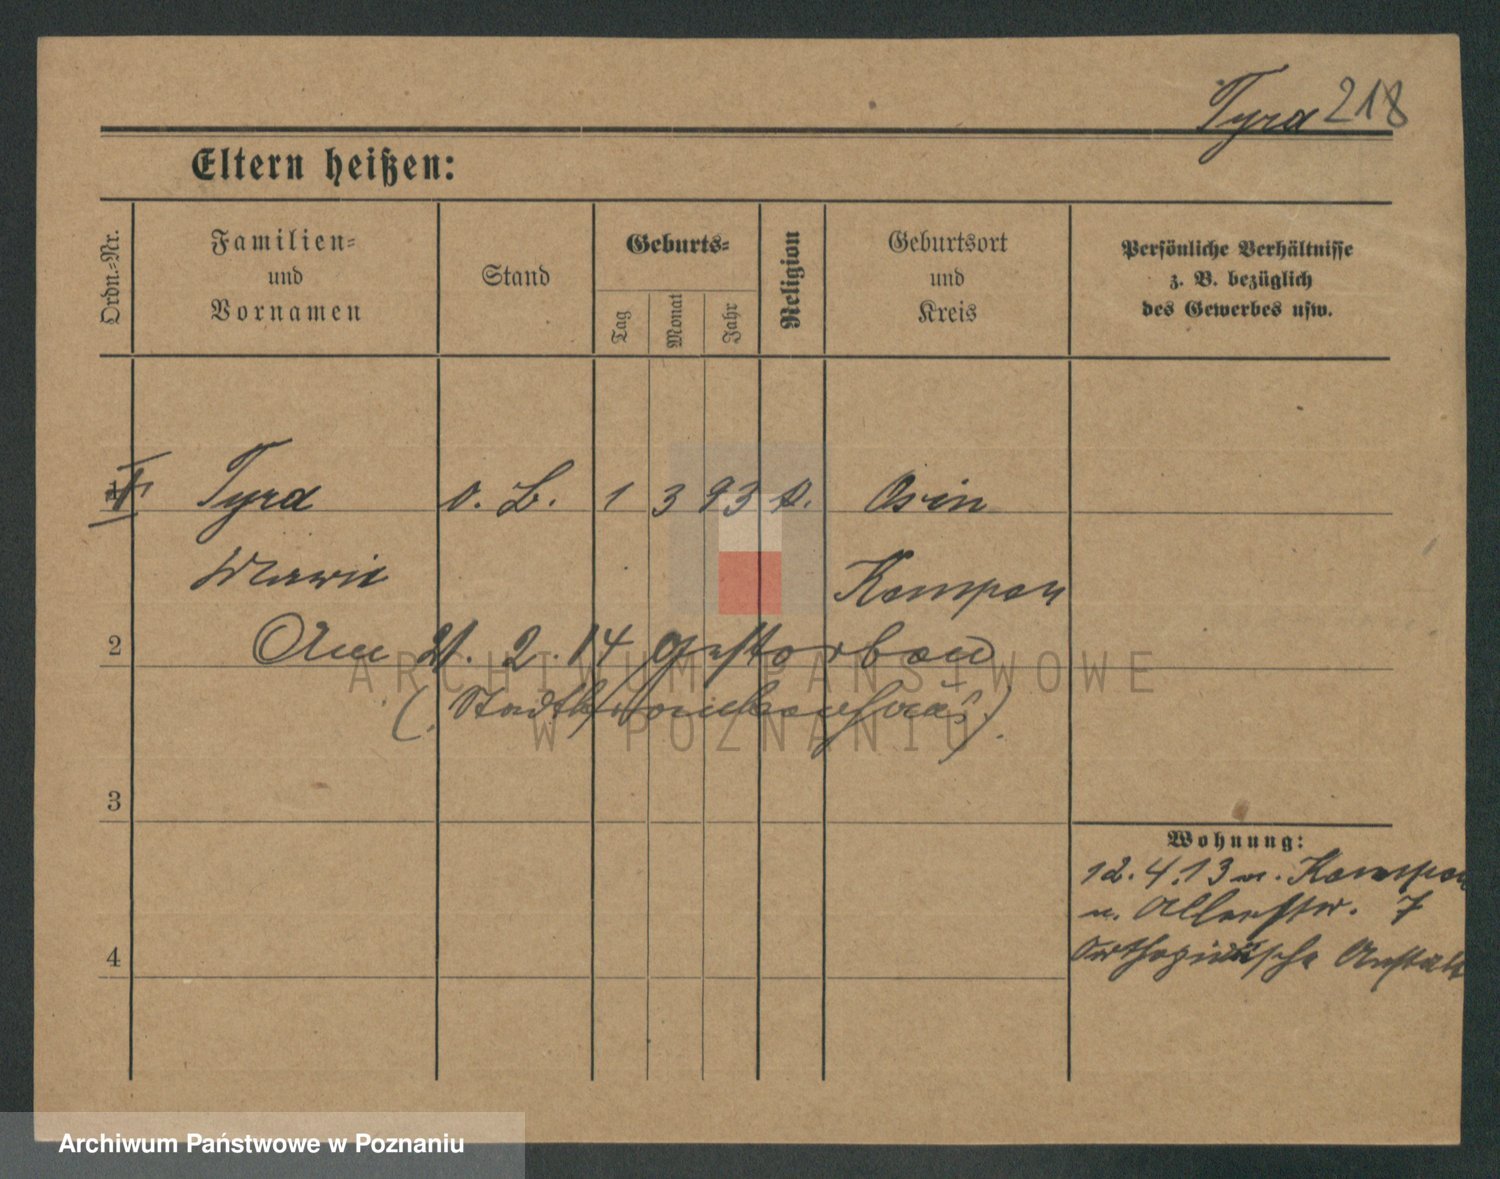 Tyra 218
Eltern heißen:
Ordn.-Nr.
Familien-
und
Vornamen
Stand
Geburts-
Tag
Monat
Jahr
Religion
Geburtsort
und
Kreis
Persönliche Verhältnisse
z. B. bezüglich
des Gewerbes usw.
Tyra o. B. 1 3 93 k. Osin
Kempen
2
Am 21. 2. 14 gestorben
(Stadtkrankenhaus).
3
4
Wohnung:
12.4.13 v. Kempen
n. 7
Orthopädische Anstalt
ARCHIWUM PAŃSTWOWE
W POZNANIU
Archiwum Państwowe w Poznaniu